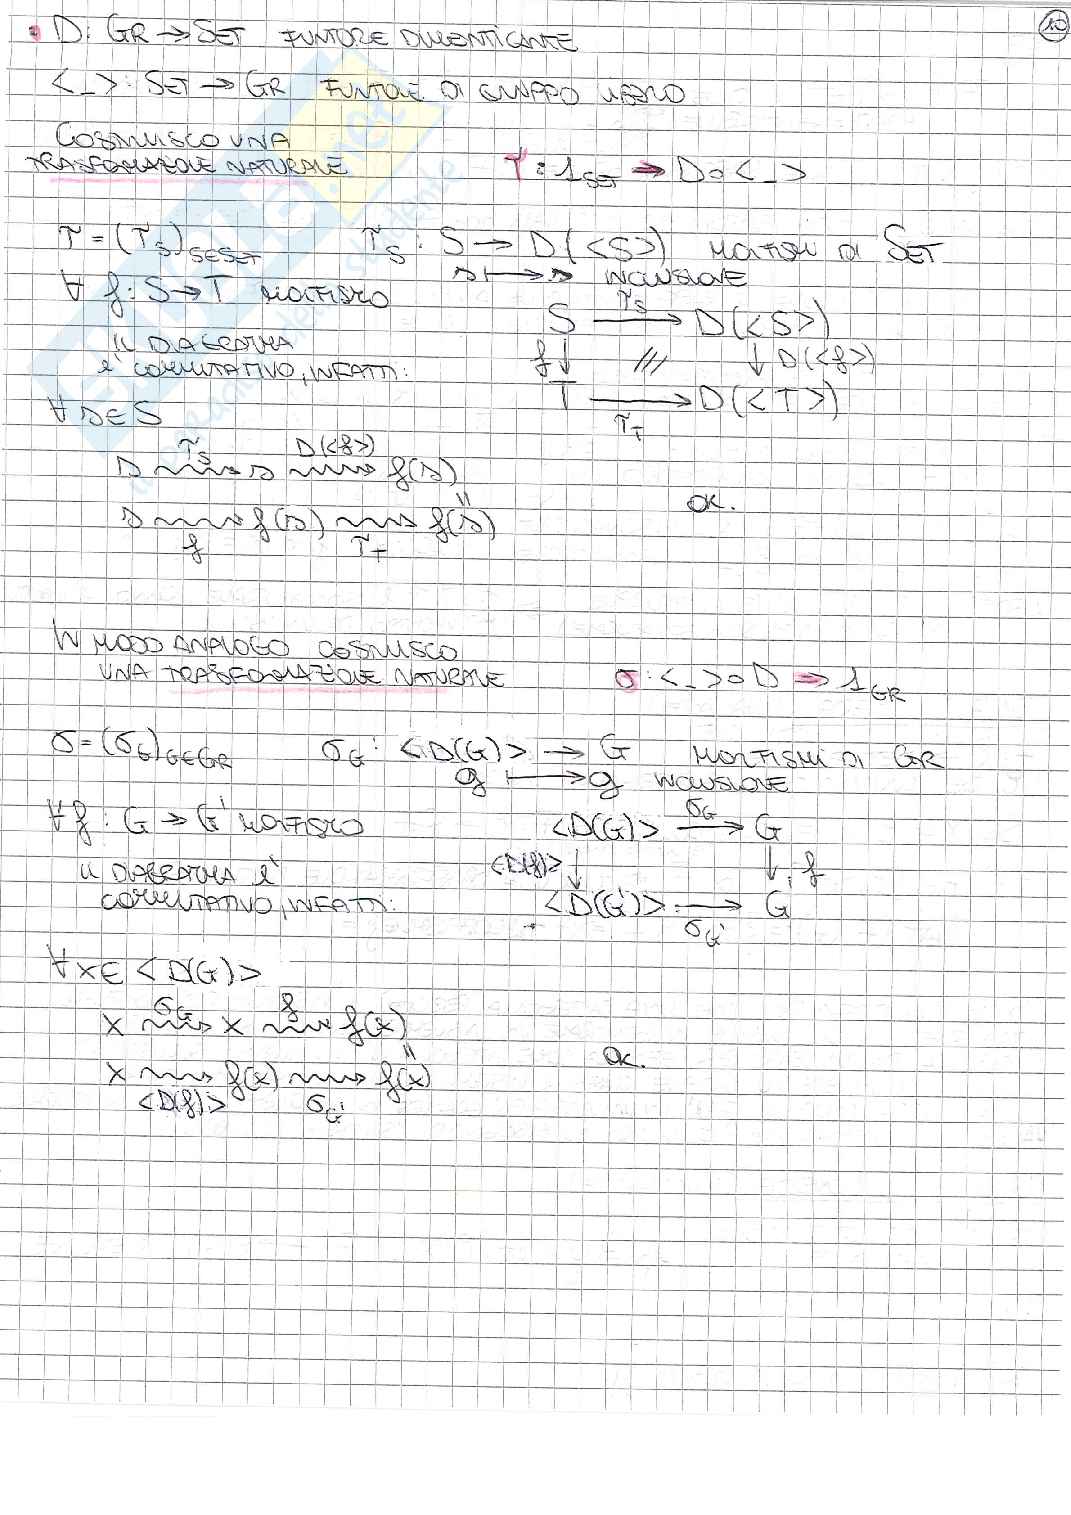 10
• D: GR → SET FUNTORE DIMENTICANTE
<_>: SET → GR FUNTORE DI GRUPPO LIBERO
COSTRUISCO UNA
TRASFORMAZIONE NATURALE τ: 1_SET ⇒ D∘<_>
τ = (τ_S)_S∈SET τ_S: S → D(<S>) MORFISMI DI SET
s ↦ s INCLUSIONE
∀ f: S → T MORFISMO
S —τ_S→ D(<S>)
IL DIAGRAMMA f↓ /// ↓D(<f>)
E' COMMUTATIVO, INFATTI:
T —τ_T→ D(<T>)
∀ s∈S
s ⇝τ_S s ⇝D(<f>) f(s)
=
s ⇝f f(s) ⇝τ_T f(s) OK.
IN MODO ANALOGO COSTRUISCO
UNA TRASFORMAZIONE NATURALE σ: <_>∘D ⇒ 1_GR
σ = (σ_G)_G∈GR σ_G: <D(G)> → G MORFISMI DI GR
g ↦ g INCLUSIONE
∀ f: G → G' MORFISMO <D(G)> —σ_G→ G
IL DIAGRAMMA E' <D(f)>↓ ↓f
COMMUTATIVO, INFATTI: <D(G')> —σ_G'→ G'
∀ x∈<D(G)>
x ⇝σ_G x ⇝f f(x)
=
x ⇝<D(f)> f(x) ⇝σ_G' f(x) OK.